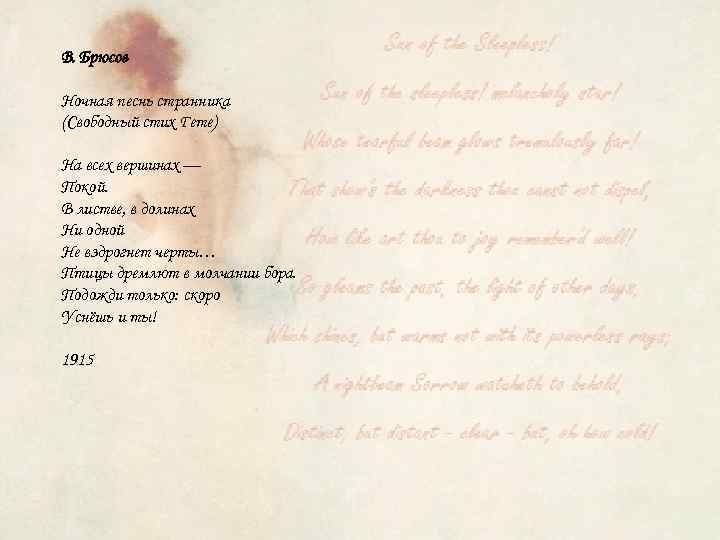 В. Брюсов
Ночная песнь странника
(Свободный стих Гете)
На всех вершинах —
Покой.
В листве, в долинах
Ни одной
Не вздрогнет черты…
Птицы дремлют в молчании бора.
Подожди только: скоро
Уснёшь и ты!
1915
Sun of the Sleepless!
Sun of the sleepless! melancholy star!
Whose tearful beam glows tremulously far!
That show's the darkness thou canst not dispel,
How like art thou to joy remember'd well!
So gleams the past, the light of other days,
Which shines, but warms not with its powerless rays;
A nightbeam Sorrow watcheth to behold,
Distinct, but distant – clear – but, oh how cold!